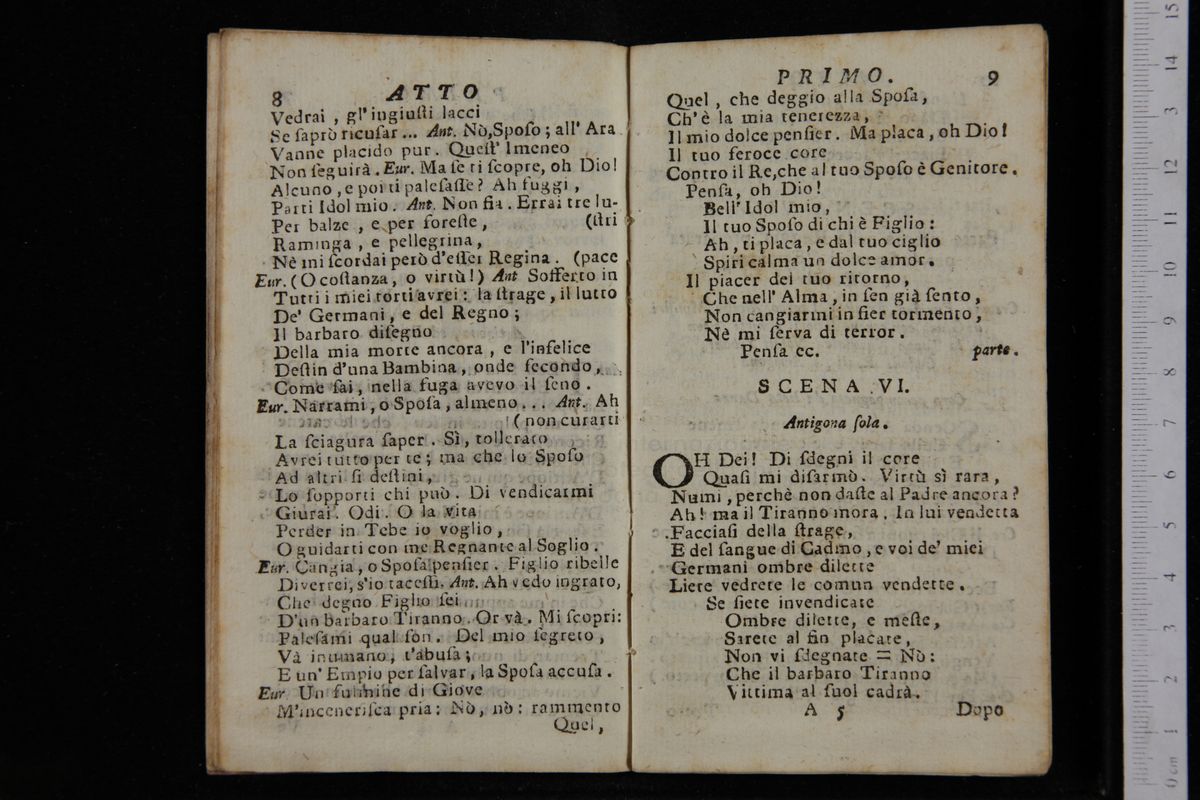 8 ATTO
Vedrai , gl'ingiuſti lacci
Se ſaprò ricuſar ... Ant. Nò,Spoſo ; all' Ara
Vanne placido pur . Queſt' Imeneo
Non ſeguirà . Eur. Ma ſe ti ſcopre, oh Dio!
Alcuno , e poi ti paleſaſſe? Ah fuggi ,
Parti Idol mio . Ant. Non fia . Errai tre lu-
Per balze , e per foreſte , (ſtri
Raminga , e pellegrina ,
Nè mi ſcordai però d'eſſer Regina . (pace
Eur. ( O coſtanza, o virtù ! ) Ant Sofferto in
Tutti i miei torti avrei : la ſtrage , il lutto
De' Germani , e del Regno ;
Il barbaro diſegno
Della mia morte ancora , e l'infelice
Deſtin d'una Bambina , onde fecondo ,
Come ſai , nella fuga avevo il ſeno .
Eur. Narrami , o Spoſa , almeno . . . Ant. Ah
! ( non curarti
La ſciagura ſaper . Sì , tollerato
Avrei tutto per te ; ma che lo Spoſo
Ad altri ſi deſtini ,
Lo ſopporti chi può . Di vendicarmi
Giurai . Odi . O la vita
Perder in Tebe io voglio ,
O guidarti con me Regnante al Soglio .
Eur. Cangia , o Spoſa penſier . Figlio ribelle
Diverrei, s'io taceſſi. Ant. Ah vedo ingrato,
Che degno Figlio ſei
D'un barbaro Tiranno . Or và . Mi ſcopri:
Paleſami qual ſon . Del mio ſegreto ,
Và inumano , t'abuſa ;
E un' Empio per ſalvar , la Spoſa accuſa .
Eur Un fulmine di Giove
M'inceneriſca pria : Nò , nò : rammento
Quel ,
PRIMO. 9
Quel , che deggio alla Spoſa ,
Ch'è la mia tenerezza ,
Il mio dolce penſier . Ma placa , oh Dio !
Il tuo feroce core
Contro il Re,che al tuo Spoſo è Genitore .
Penſa, oh Dio !
Bell' Idol mio ,
Il tuo Spoſo di chi è Figlio :
Ah , ti placa , e dal tuo ciglio
Spiri calma un dolce amor .
Il piacer del tuo ritorno ,
Che nell' Alma , in ſen già ſento ,
Non cangiarmi in fier tormento ,
Nè mi ſerva di terror .
Penſa ec. parte .
SCENA VI.
Antigona ſola .
OH Dei! Di ſdegni il core
Quaſi mi diſarmò . Virtù sì rara ,
Numi , perchè non daſte al Padre ancora ?
Ah ! ma il Tiranno mora . In lui vendetta
Facciaſi della ſtrage ,
E del ſangue di Cadmo , e voi de' miei
Germani ombre dilette
Liete vedrete le comun vendette .
Se ſiete invendicate
Ombre dilette, e meſte ,
Sarete al fin placate ,
Non vi ſdegnate = Nò :
Che il barbaro Tiranno
Vittima al ſuol cadrà .
A 5 Dopo
0 cm 1 2 3 4 5 6 7 8 9 10 11 12 13 14 15